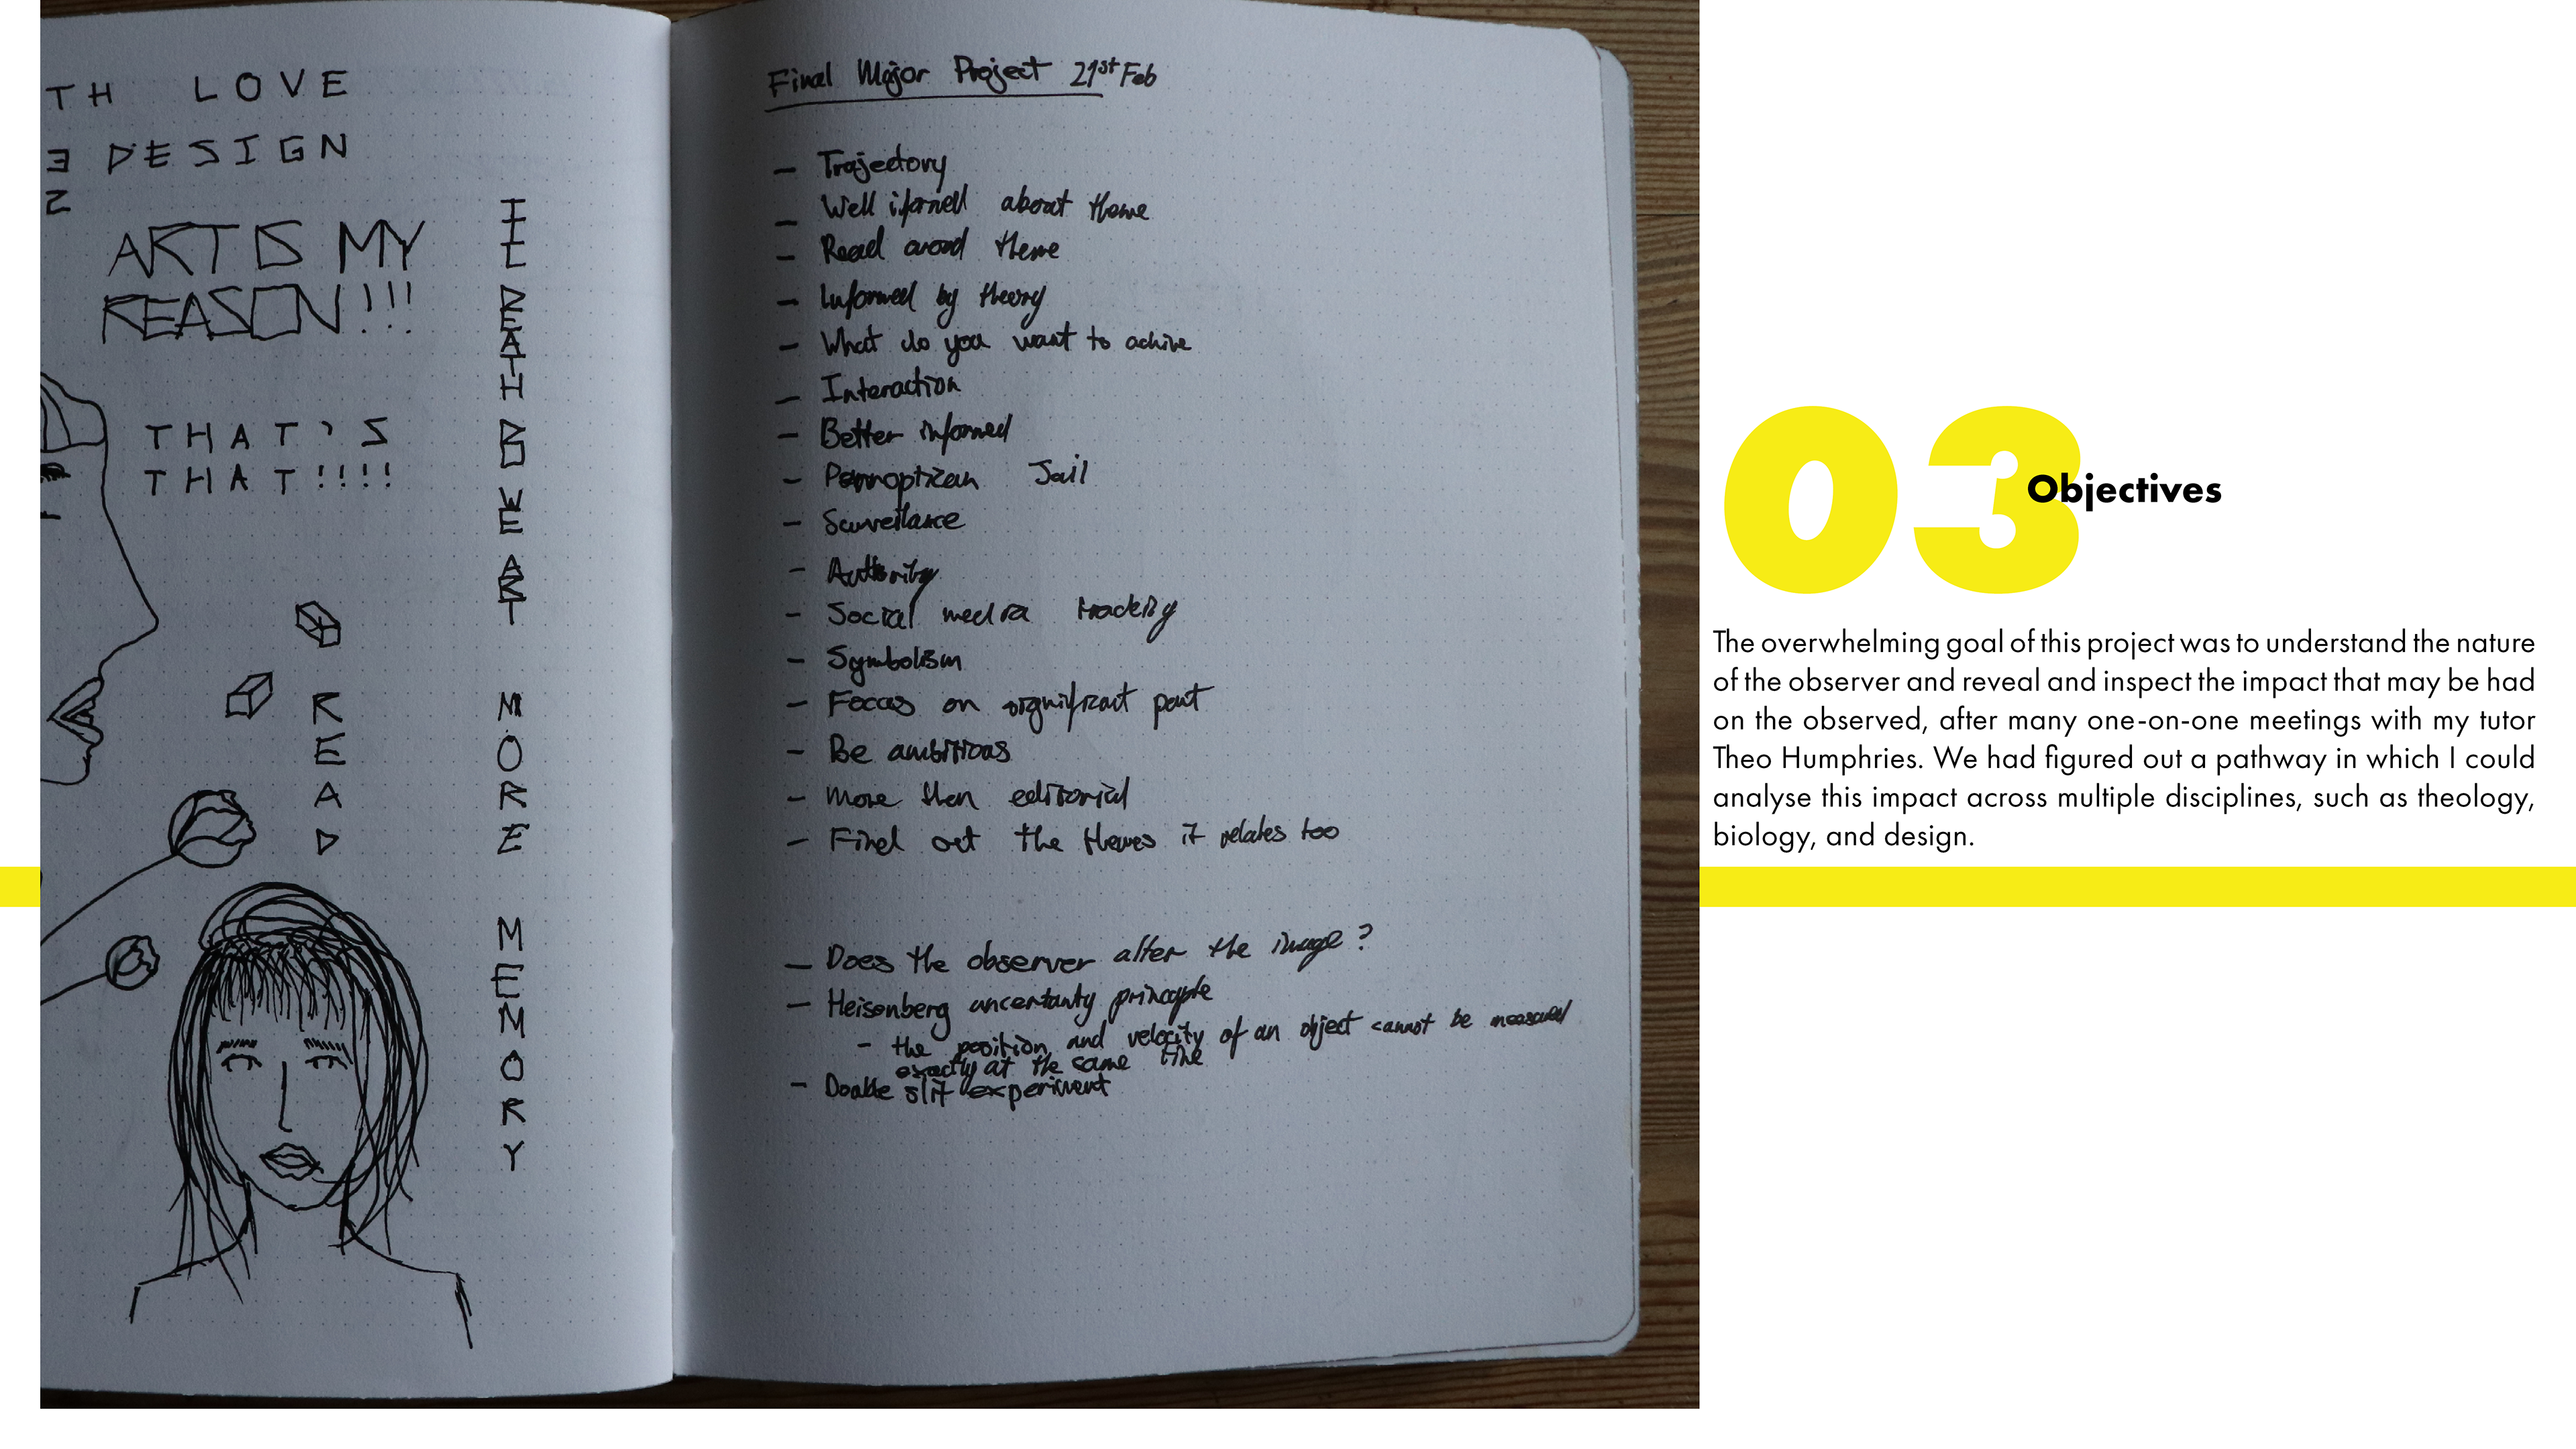 TH LOVE
3 DESIGN
2
ART IS MY
REASON!!!
THAT'S
THAT!!!!
READ
MORE
MEMORY
Final Major Project 21st Feb
– Trajectory
– Well iformed about theme
– Read around theme
– Informed by theory
– What do you want to achive
– Interaction
– Better informed
– Pannoptican Jail
– Surveilance
– Authority
– Social media tracking
– Symbolism
– Focus on significant part
– Be ambitious
– More then editorial
– Find out the themes it relates too
– Does the observer alter the image?
– Heisenberg uncertanty principle
– the position and velocity of an object cannot be measured
exactly at the same time
– Double slit experiment
03
Objectives
The overwhelming goal of this project was to understand the nature
of the observer and reveal and inspect the impact that may be had
on the observed, after many one-on-one meetings with my tutor
Theo Humphries. We had figured out a pathway in which I could
analyse this impact across multiple disciplines, such as theology,
biology, and design.